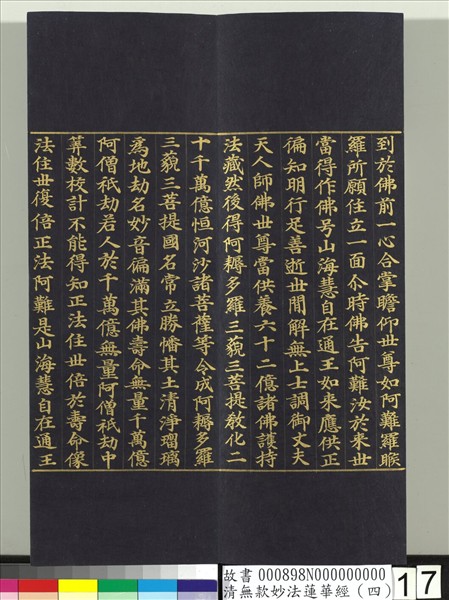 到於佛前一心合掌瞻仰世尊如阿難羅睺
羅所願住立一面尒時佛告阿難汝於來世
當得作佛号山海慧自在通王如來應供正
徧知明行足善逝世間解無上士調御丈夫
天人師佛世尊當供養六十二億諸佛護持
法藏然後得阿耨多羅三藐三菩提教化二
十千萬億恒河沙諸菩薩等令成阿耨多羅
三藐三菩提國名常立勝幡其土清淨瑠璃
為地劫名妙音徧滿其佛壽命無量千萬億
阿僧祇劫若人於千萬億無量阿僧祇劫中
筭數校計不能得知正法住世倍於壽命像
法住世復倍正法阿難是山海慧自在通王
故書 000898N000000000
清無款妙法蓮華經（四）
17